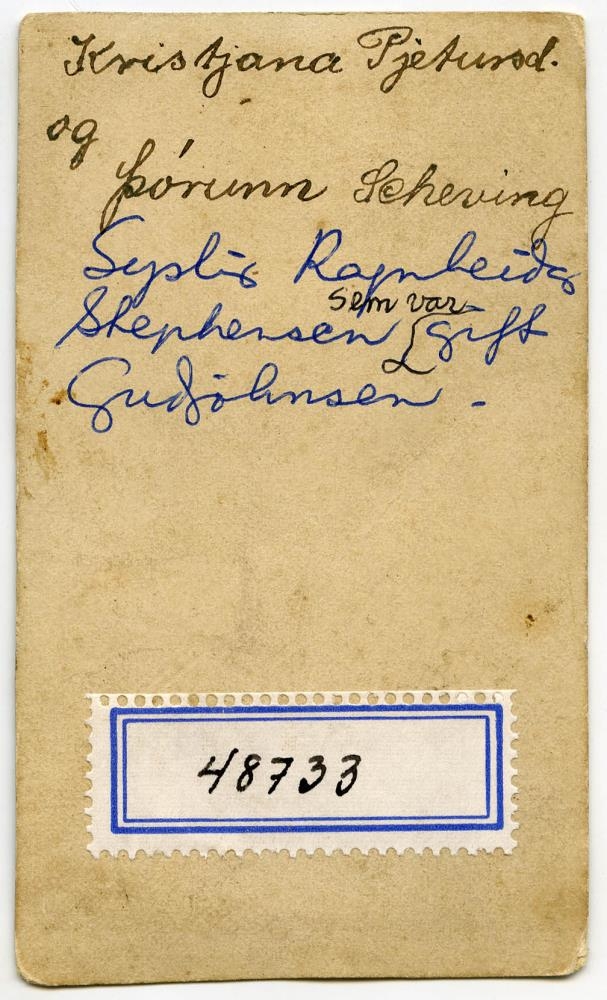 Kristjana Pjetursd.
og
Þórunn Scheving
Systir Ragnheiðar
sem var
Stephensen gift
Gudjohnsen -
48733